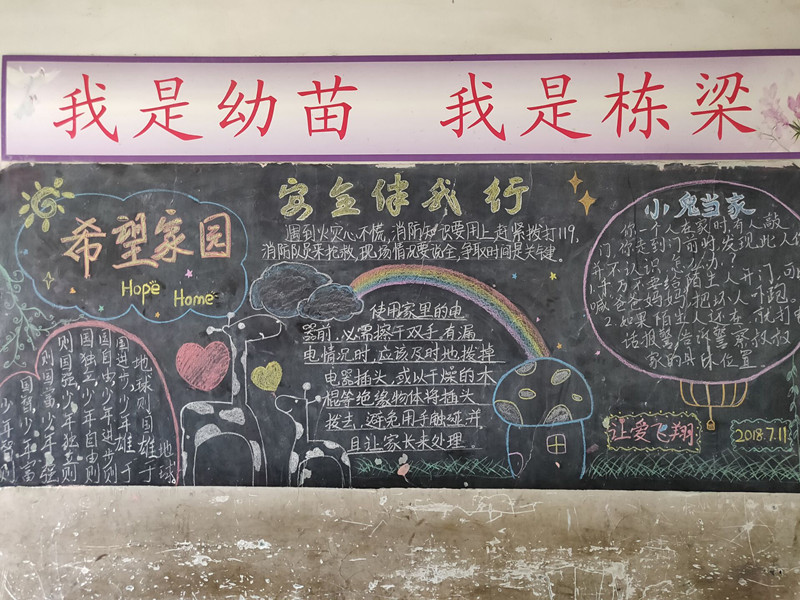 我是幼苗 我是栋梁
希望家园
Hope Home
安全伴我行
遇到火灾心不慌,消防知识要用上赶紧拨打119,
消防队员来抢救,现场情况要说全,争取时间是关键。
使用家里的电
器前,必需擦干双手,有漏
电情况时,应该及时地拨掉
电器插头,或以干燥的木
棍等绝缘物体将插头
拨去,避免用手触碰并
且让家长来处理。
小鬼当家
你一个人在家时,有人敲
门,你走到门前时,发现此人你
并不认识,怎么办?
1.千万不要给陌生人开门,可
喊爸爸妈妈,把以人吓跑。
2.如果陌生人还在
话报警告诉警察叔叔
家的具体位置
让爱飞翔
2018.7.11
地球则国雄于地球。
国进步少年雄于
国自由少年进步则
国独立少年自由则
则国强,少年独立则
则国富,少年强
国智,少年富
少年智则